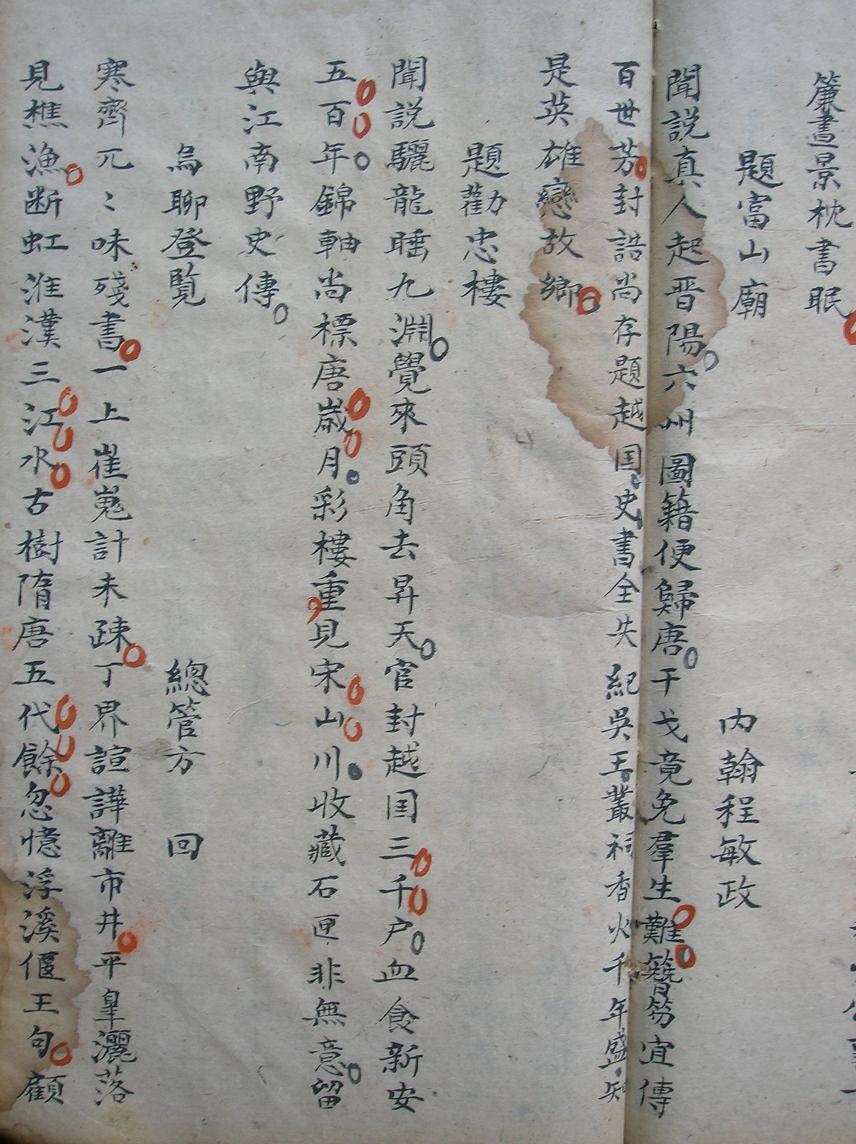 簾晝景枕書眠
題富山廟
內翰程敏政
聞說真人起晋陽六州圖籍便歸唐干戈竟免羣生難簪笏宜傳
百世芳封誥尚存題越囯史書全失紀吳王叢祠香火千年盛知
是英雄戀故鄉
題勸忠樓
聞說驪龍睡九淵覺來頭角去昇天官封越囯三千户血食新安
五百年錦軸尚標唐歲月彩樓重見宋山川收藏石匣非無意留
與江南野史傳
烏聊登覽
總管方 回
寒齊兀〻味殘書一上崔嵬計未疎丁界諠譁離市井平皐灑落
見樵漁断虹淮漢三江水古樹隋唐五代餘忽憶浮溪偃王句顧